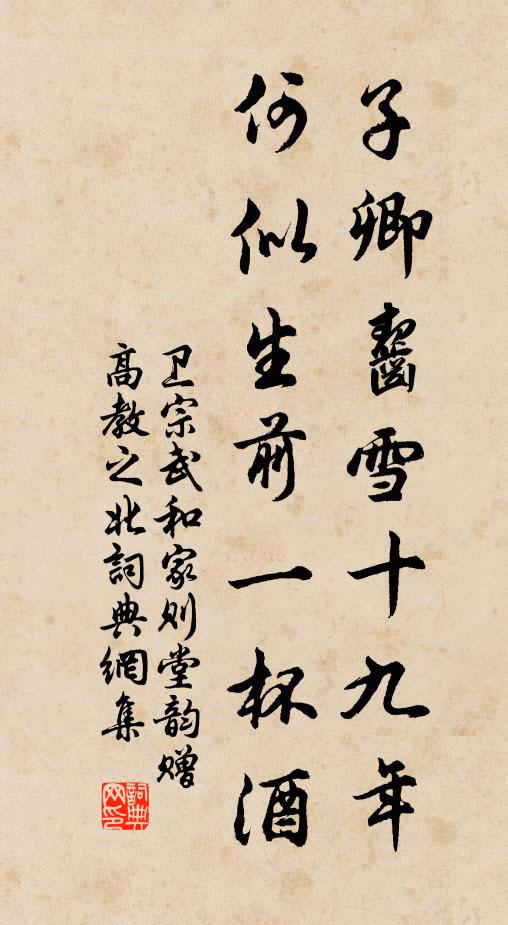 子卿齧雪十九年
何似生前一杯酒
卫宗武和家则堂韵赠
高教之北词典網集
詞典网印